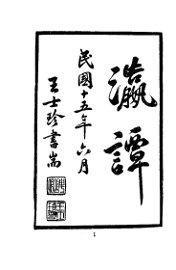 瀛譚
民國十五年六月
王士珍書耑